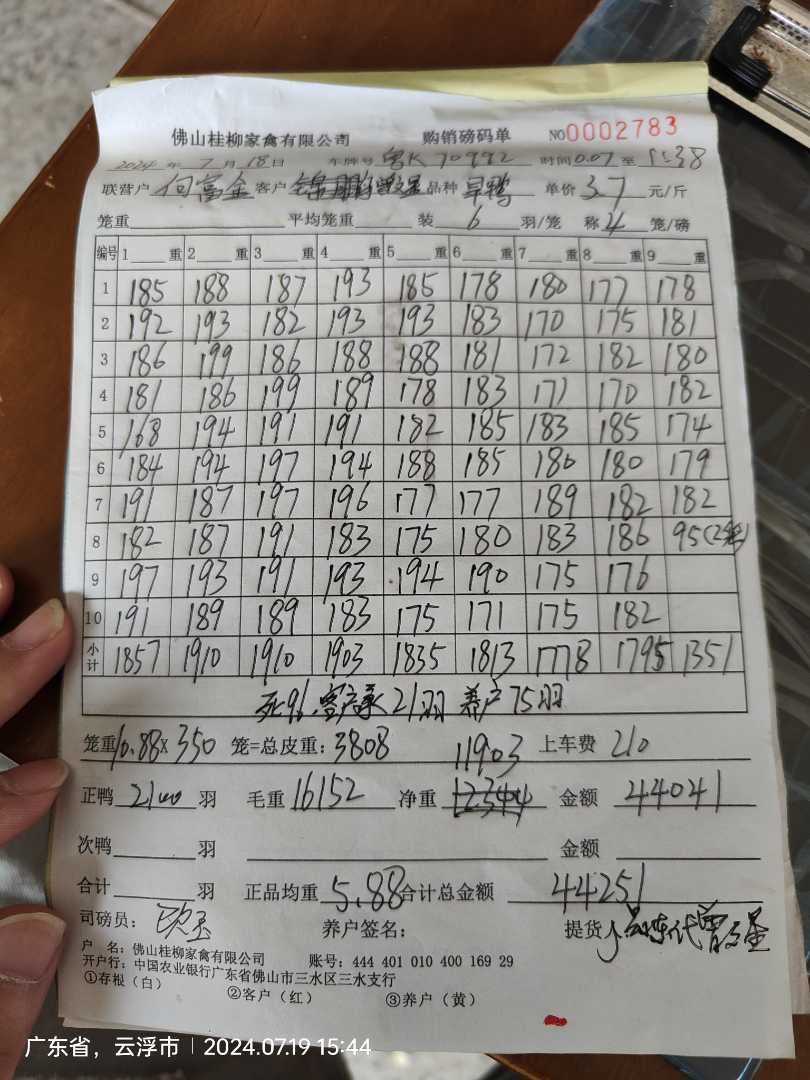 佛山桂柳家禽有限公司 购销磅码单 NO0002783
2024年7月18日 车牌号粤K70992 时间0.07至
联营户何富金客户 品种旱鸭 单价3.7元/斤
笼重 平均笼重 装6羽/笼 称4笼/磅
编号 1 重 2 重 3 重 4 重 5 重 6 重 7 重 8 重 9 重
1 185 188 187 193 185 178 180 177 178
2 192 193 182 193 193 183 170 175 181
3 186 199 186 188 188 181 172 182 180
4 181 186 199 189 178 183 171 170 182
5 168 194 191 191 182 185 183 185 174
6 184 194 197 194 188 185 180 180 179
7 191 187 197 196 177 177 189 182 182
8 182 187 191 183 175 180 183 186 95(2笼)
9 197 193 191 193 194 190 175 176
10 191 189 189 183 175 171 175 182
小计 1857 1910 1910 1903 1835 1813 1778 1795 1351
死96.客户承21羽 养户75羽
笼重10.88x350笼=总皮重:3808 11903 上车费210
正鸭2100羽 毛重16152 净重 金额44041
次鸭 羽 金额
合计 羽 正品均重5.88合计总金额44251
司磅员: 养户签名: 提货
户 名:佛山桂柳家禽有限公司 账号:444 401 010 400 169 29
开户行:中国农业银行广东省佛山市三水区三水支行
①存根(白) ②客户(红) ③养户(黄)
广东省,云浮市 2024.07.19 15:44